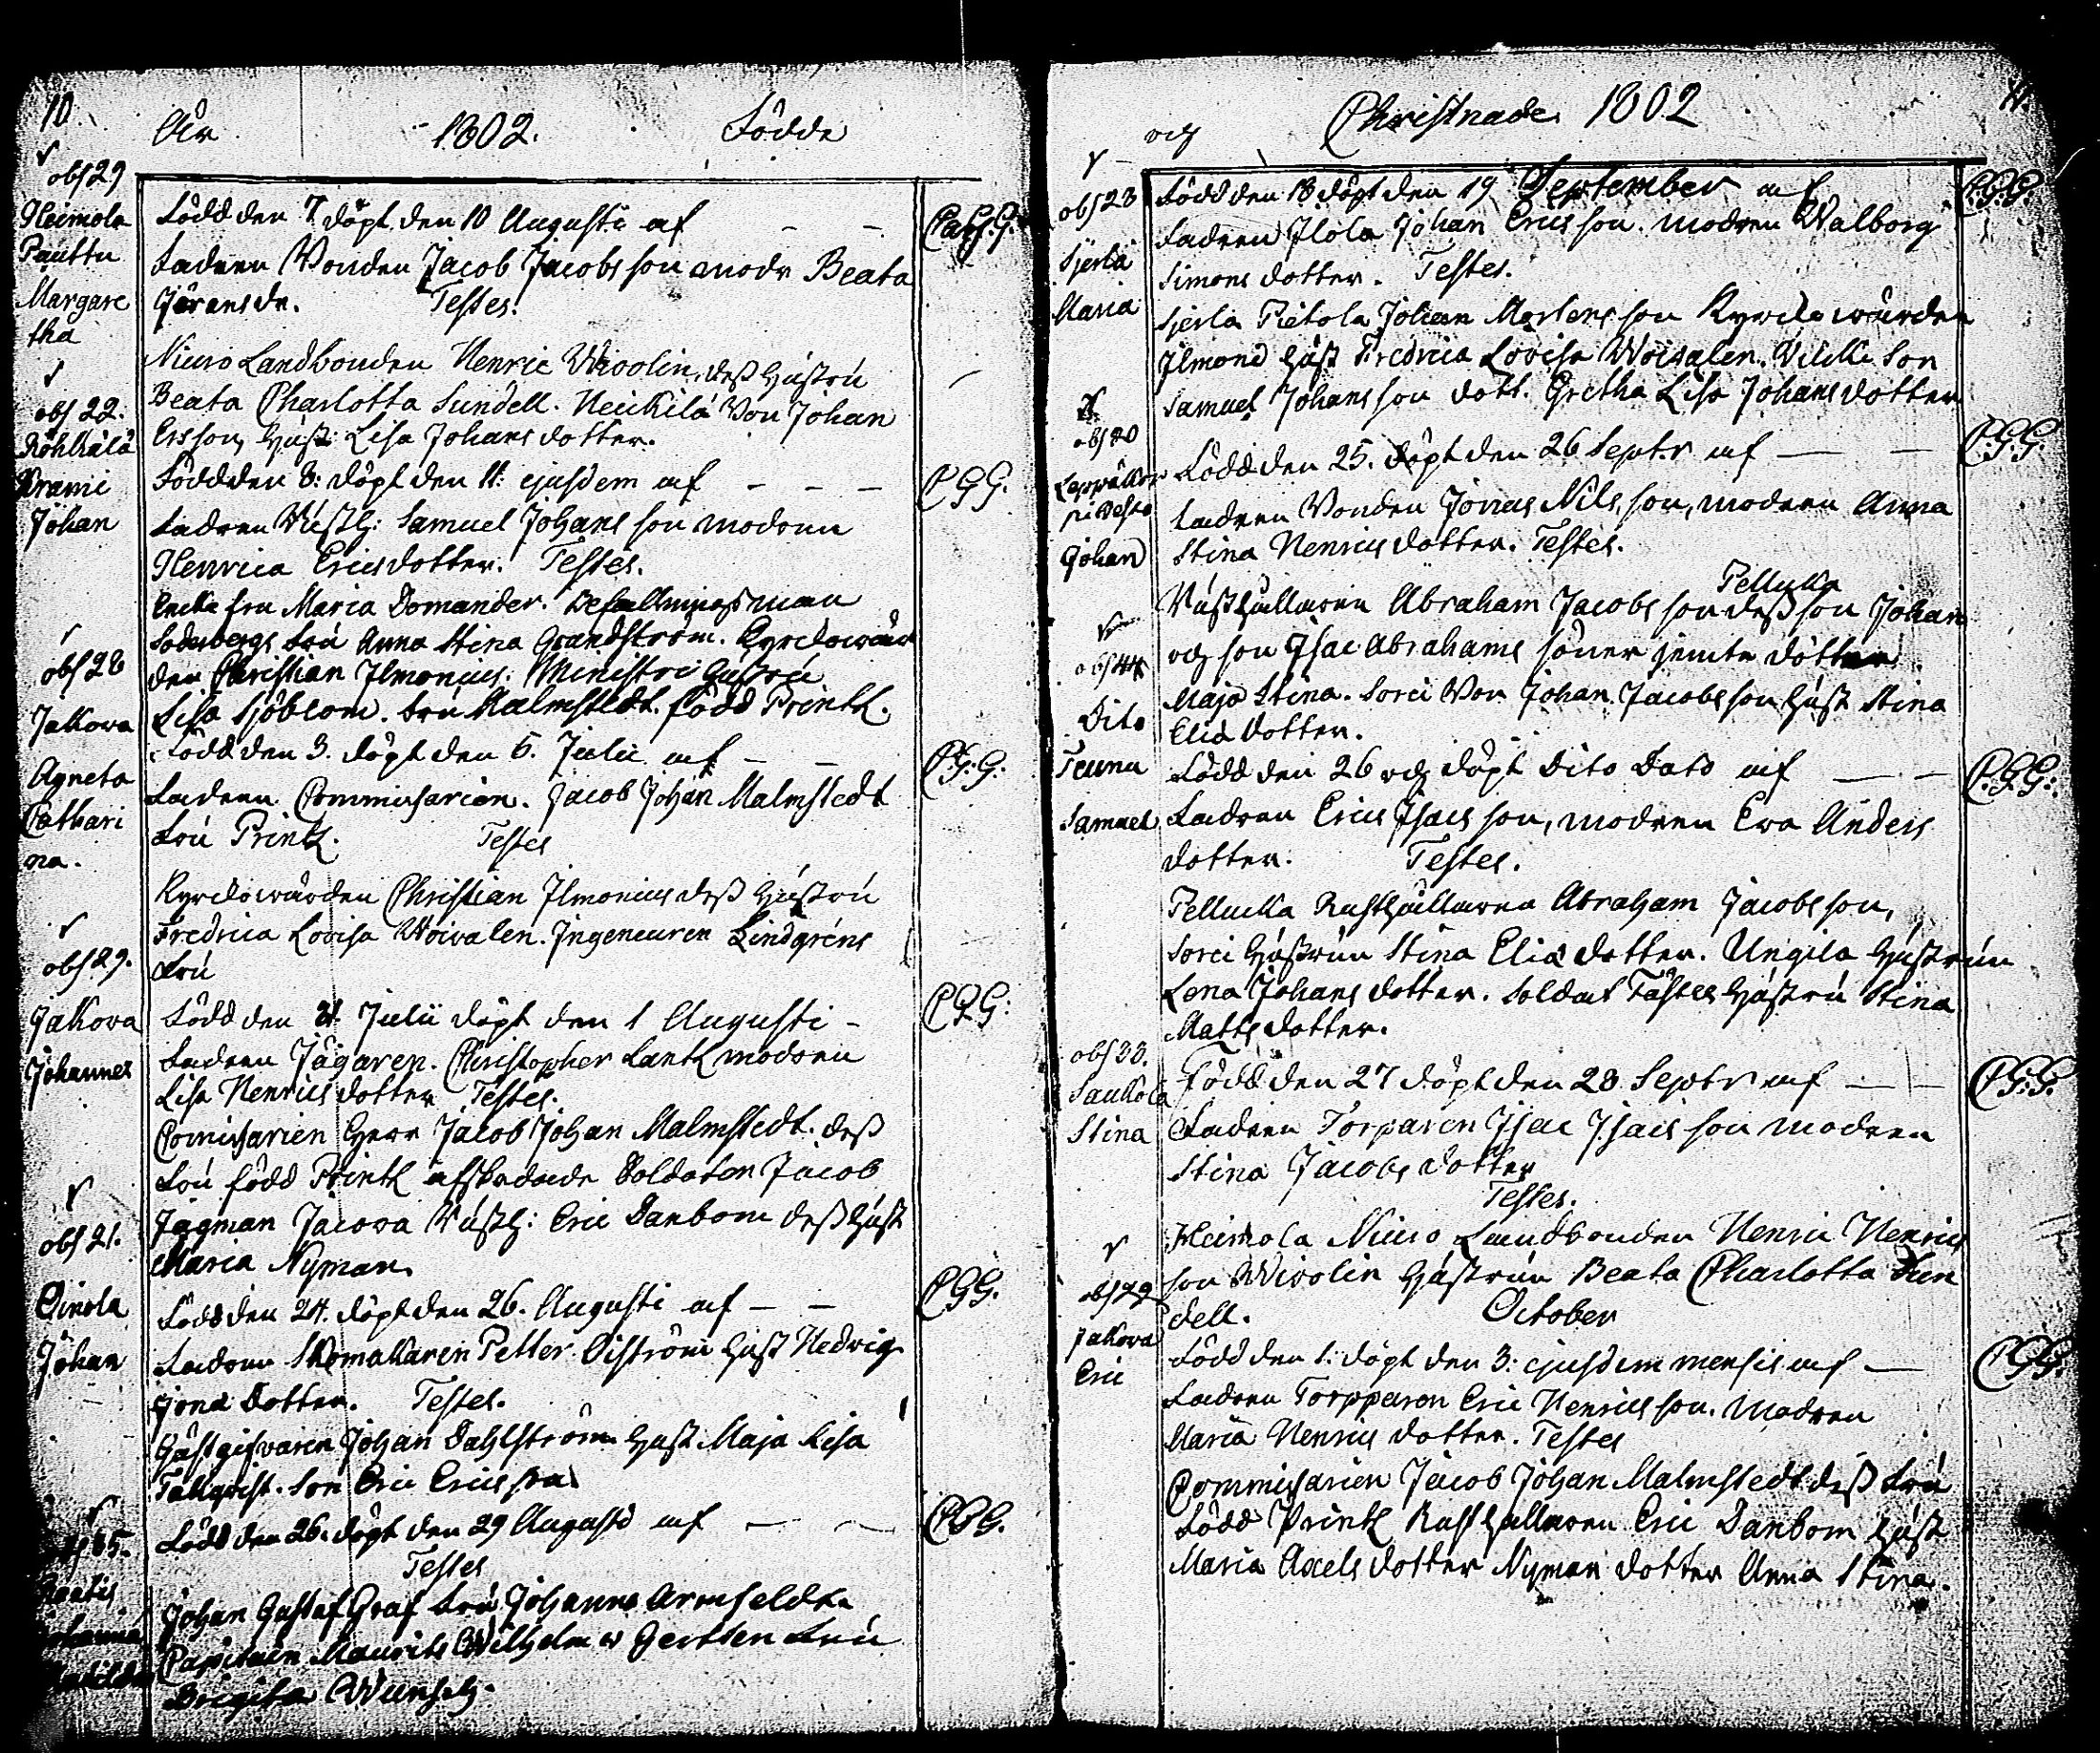 10.
År 1802. Födde
obs 29
Heimola
Pauttu
Margare
tha
Född den 7 döpt den 10 Augusti af
Fadren Bonden Jacob Jacobsson modr Beata
Göransdr. Testes.
Niuro Landbonden Henric Wivolin, dess Hustru
Beata Charlotta Sundell. Heickilä Bon Johan
Ersson, Hust: Lisa Johansdotter.
obs 22.
Krami
Johan
Född den 8: döpt den 11: ejusdem af CGG.
Fadren Rusth: Samuel Johansson modren
Henrica Ericsdotter. Testes.
Encke fru Maria Domander. Befallningsman
Söderbergs Fru Anna Stina Grandström. Kyrckowär
den Christian Ilmonius. Ministri Hustru
Lisa Sjöblom. Fru Malmstedt född Printz.
obs 28
Jakova
Agneta
Cathari
na.
Född den 3. döpt den 5. Julii af CGG:
Fadren Commissarien. Jacob Johan Malmstedt
Fru Printz. Testes
Kyrckowärden Christian Ilmonius dess Hustru
Fredrica Lovisa Woivalen. Ingeneuren Lindgréns
Fru
obs 29.
Jakova
Johannes
Född den 31 Julii döpt den 1 Augusti CGG:
Fadren Jägaren. Christopher Lantz modren
Lisa Henricsdotter Testes.
Comissarien Herr Jacob Johan Malmstedt. dess
Fru född Printz afskedade Soldaten Jacob
Jägman Jacova Rusth: Eric Danbom dess Hust
Maria Nyman
obs 21.
Oinola
Johan
Född den 24. döpt den 26. Augusti af CGG.
Fadren Skomakaren Petter Öiström Hust Hedvig
Jona Dotter. Testes.
Gästgifvaren Johan Dahlström Hust Maja Lisa
Tallqvist. Son Eric Ericsson
Född den 26. döpt den 29 Augusti af CGG.
Testes
Johan Gustaf Graf Fru Johanna Armfeldt.
Capitain Maurits Wilhelm v Gertten Fru
Brigita Wunsch.
och Christnade 1802
11.
obs 28
Sjerla
Maria
Född den 18 döpt den 19 September af CGG.
Fadren Ilola Johan Ericsson. modren Walborg
Simons dotter. Testes.
Sjerla Pietola Johan Mårtensson Kyrckowärden
Ilmoni Hust Fredrica Lovisa Woivalen. Son
Samuel Johansson dott. Gretha Lisa Johansdotter
obs 20
Johan
Född den 25. döpt den 26 Septr af CGG.
Fadren Bonden Jonas Nilsson, modren Anna
Stina Henricsdotter. Testes.
Pellucka
Rusthållaren Abraham Jacobsson dess son Johan
och son Isac Abrahams söner jemte dotter
Maja Stina. Sorci Bon Johan Jacobsson Hust Stina
Elia Dotter.
obs 44
Dito
Samuel
Född den 26 och döpt Dito Dato af CGG:
Fadren Eric Isacsson, modren Ewa Anders
dotter. Testes.
Pellucka Rusthållaren Abraham Jacobsson,
Sorci Hustrun Stina Elia dotter. Ungila Hustrun
Lena Johans dotter. Soldat Hustru Stina
Matts dotter.
obs 33.
Saukola
Stina
Född den 27 döpt den 28 Septr af CGG.
Fadren Torparen Isac Isacsson modren
Stina Jacobs dotter
Testes.
Heimola Niuro Landbonden Henric Henrics
son Wivolin Hustrun Beata Charlotta Sun
dell. October
Jakova
Eric
Född den 1. döpt den 3: ejusdem mensis af CGG.
Fadren Torpparen Eric Henricsson. Modren
Maria Henrics dotter. Testes
Commissarien Jacob Johan Malmstedt dess Fru
Född Printz Rusthållaren Eric Danbom Hust
Maria Axels dotter Nyman dotter Anna Stina.